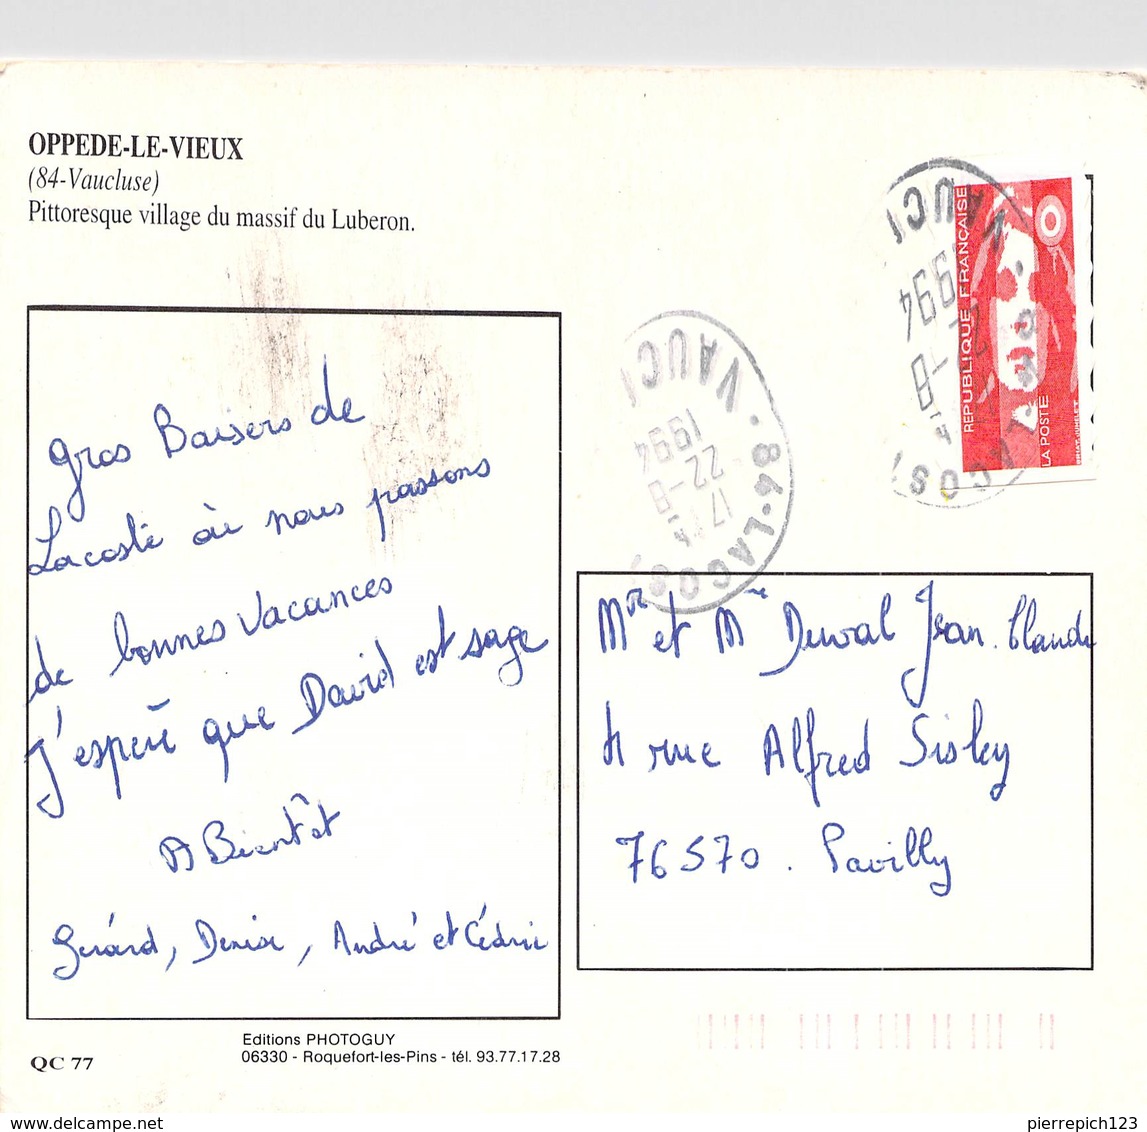 OPPEDE-LE-VIEUX
(84-Vaucluse)
Pittoresque village du massif du Luberon.
gros Baisers de
Lacoste où nous passons
de bonnes vacances
J'espère que David est sage
A Bientôt
Gérard, Denise, André et Cédric
QC 77
Editions PHOTOGUY
06330 - Roquefort-les-Pins - tél. 93.77.17.28
REPUBLIQUE FRANÇAISE
LA POSTE
84 · LACOS
VAUCL
17 H
22-8
1994
Mr et Mme Duval Jean. Claude
4 rue Alfred Sisley
76570. Pavilly
www.delcampe.net
pierrepich123